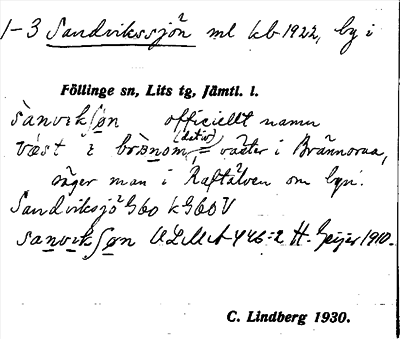 1-3 Sandvikssjön ml kb 1922, by i
Föllinge sn, Lits tg, Jämtl. l.
sànvikʃøn officiellt namn
(dativ)
væst i brànom, = väster i Brännorna,
säger man i Raftälven om byn.
Sandviksjö G60 kG60V
sanvikʃøn ULMA 446:2 H. Geijer 1910.
C. Lindberg 1930.